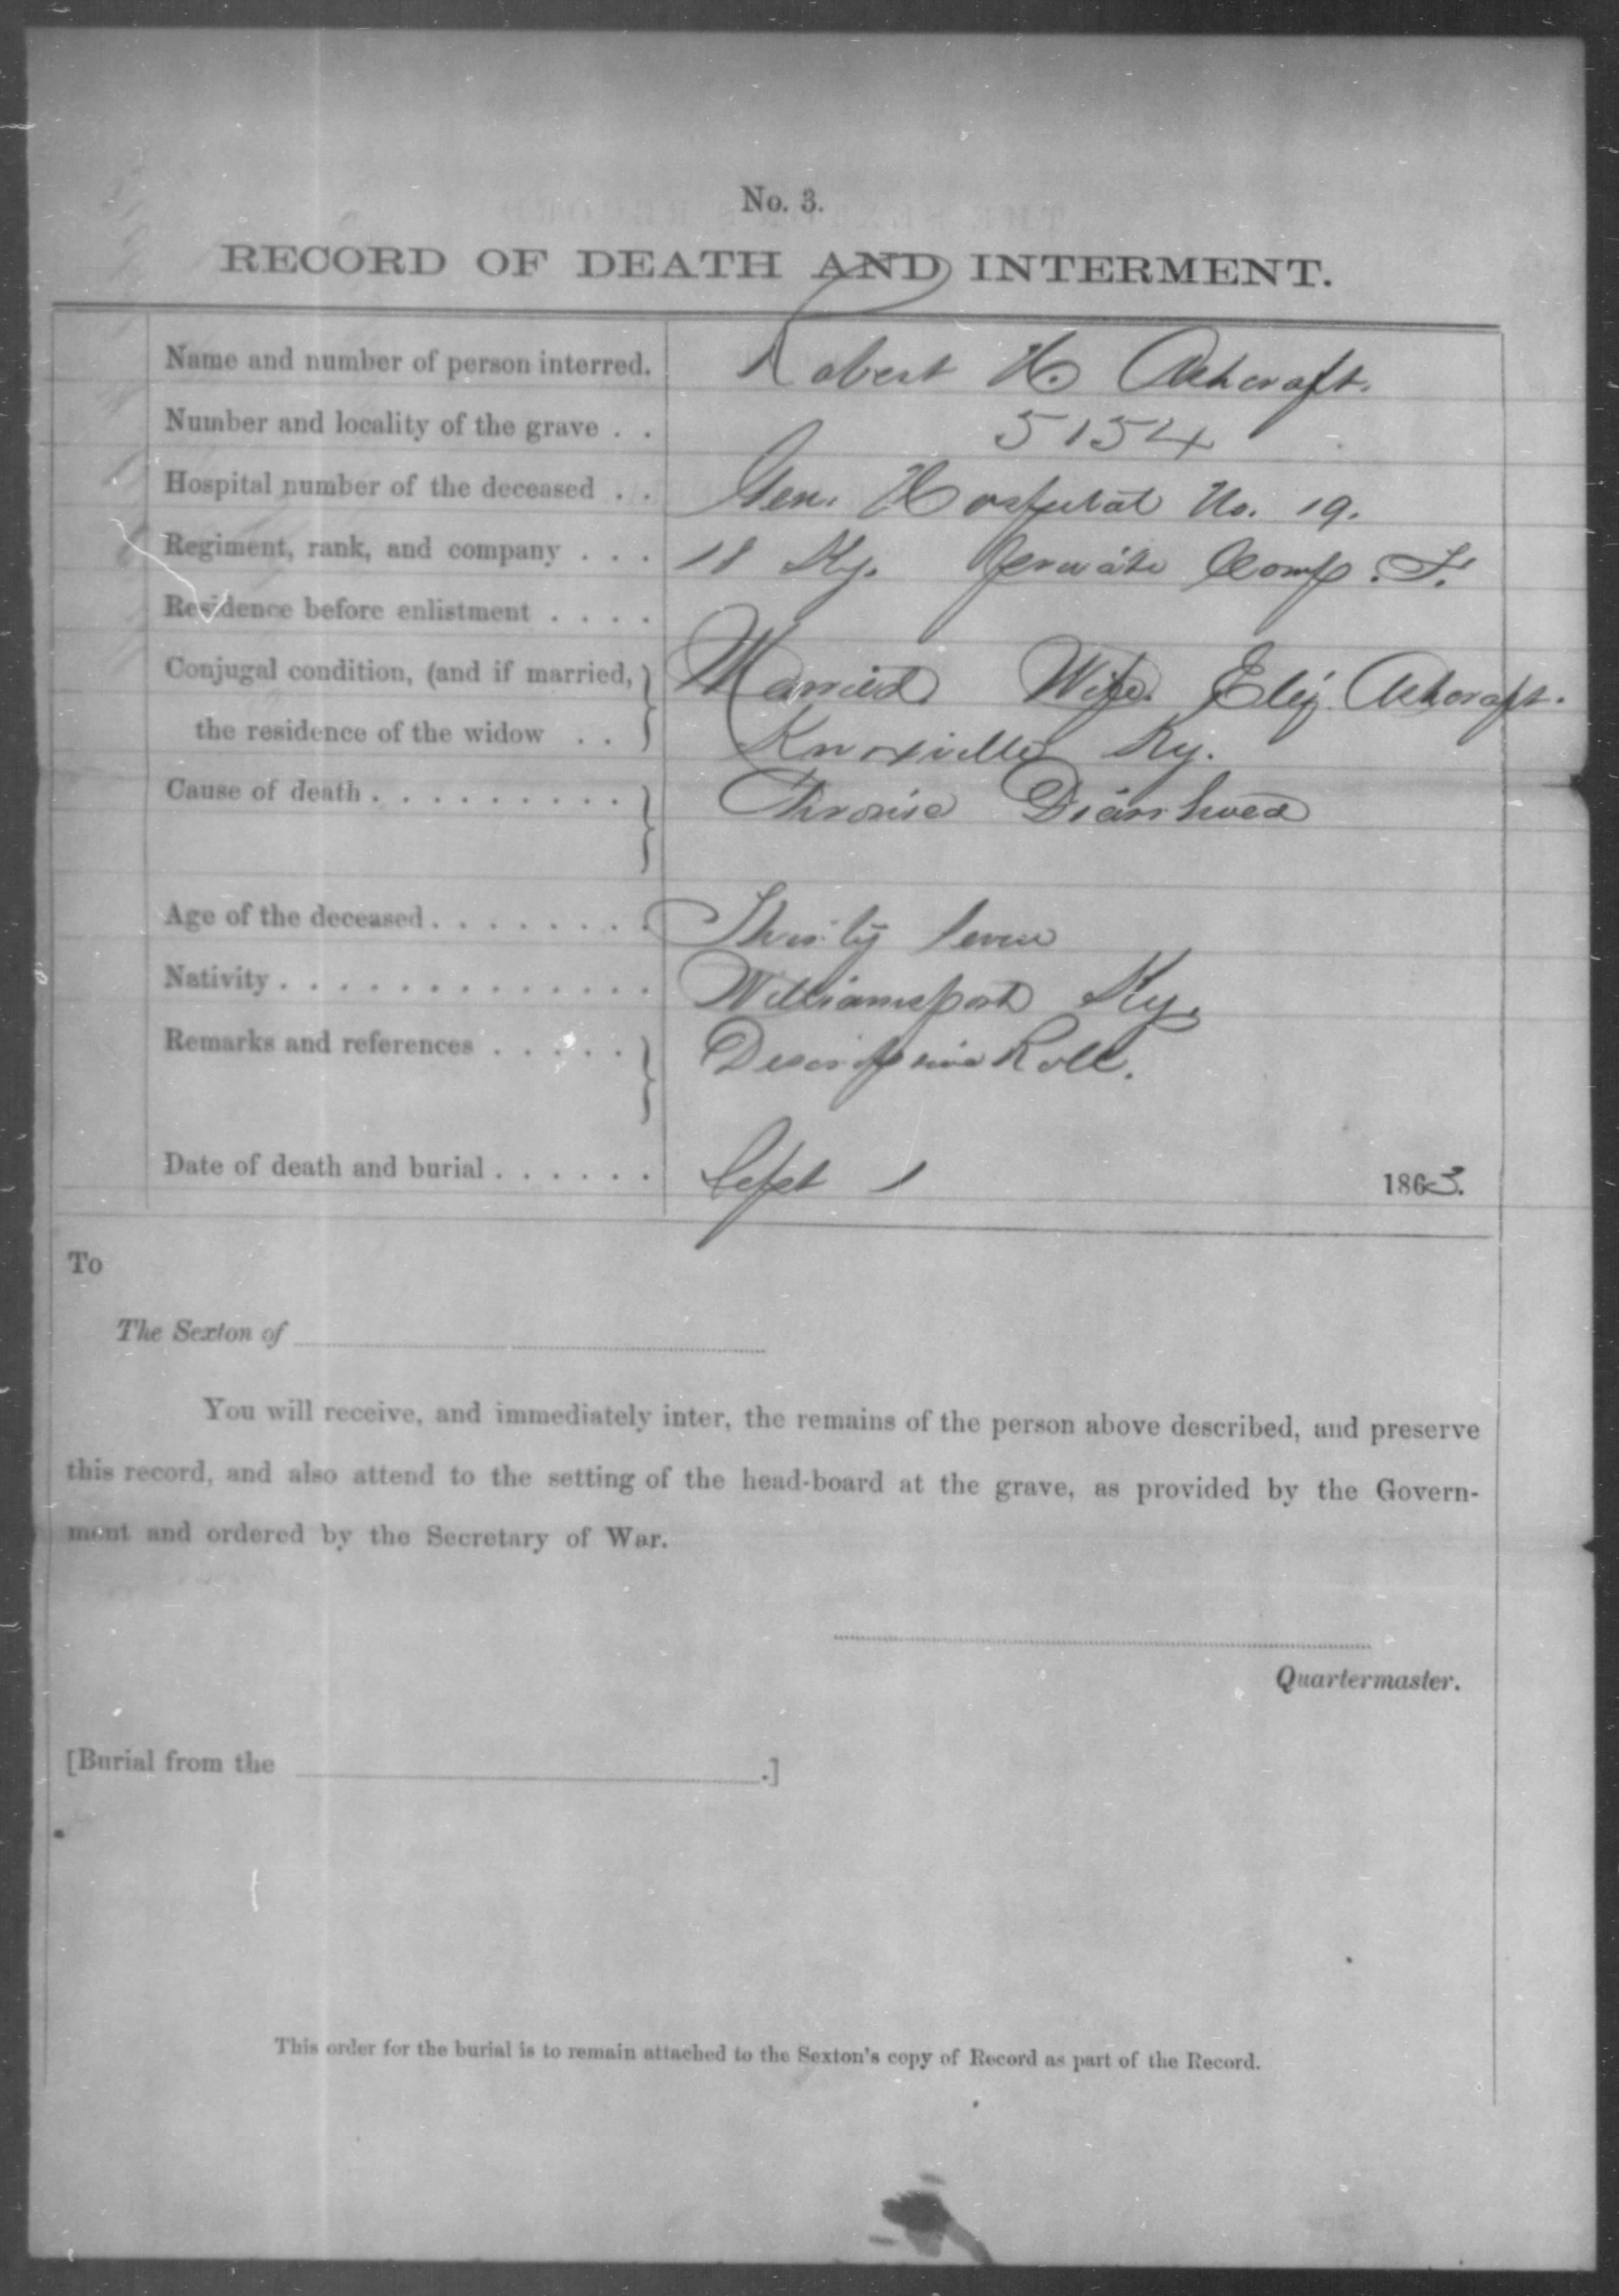 No. 3.
RECORD OF DEATH AND INTERMENT.
Name and number of person interred. Robert H. Ashcraft.
Number and locality of the grave . . 5154
Hospital number of the deceased . . Gen. Hospital No. 19.
Regiment, rank, and company . . . 18 Ky. Private Comp. F.
Residence before enlistment . . . .
Conjugal condition, (and if married, Married Wife. Eliz. Ashcraft.
the residence of the widow . . Knoxville Ky.
Cause of death . . . . . . . . . Chronic Diarrhoea
Age of the deceased . . . . . . . . Thirty Seven
Nativity . . . . . . . . . . . . . Williamsport Ky.
Remarks and references . . . . . Descriptive Roll.
Date of death and burial . . . . . . Sept 1 1863.
To
The Sexton of
You will receive, and immediately inter, the remains of the person above described, and preserve
this record, and also attend to the setting of the head-board at the grave, as provided by the Govern-
ment and ordered by the Secretary of War.
Quartermaster.
[Burial from the .]
This order for the burial is to remain attached to the Sexton's copy of Record as part of the Record.